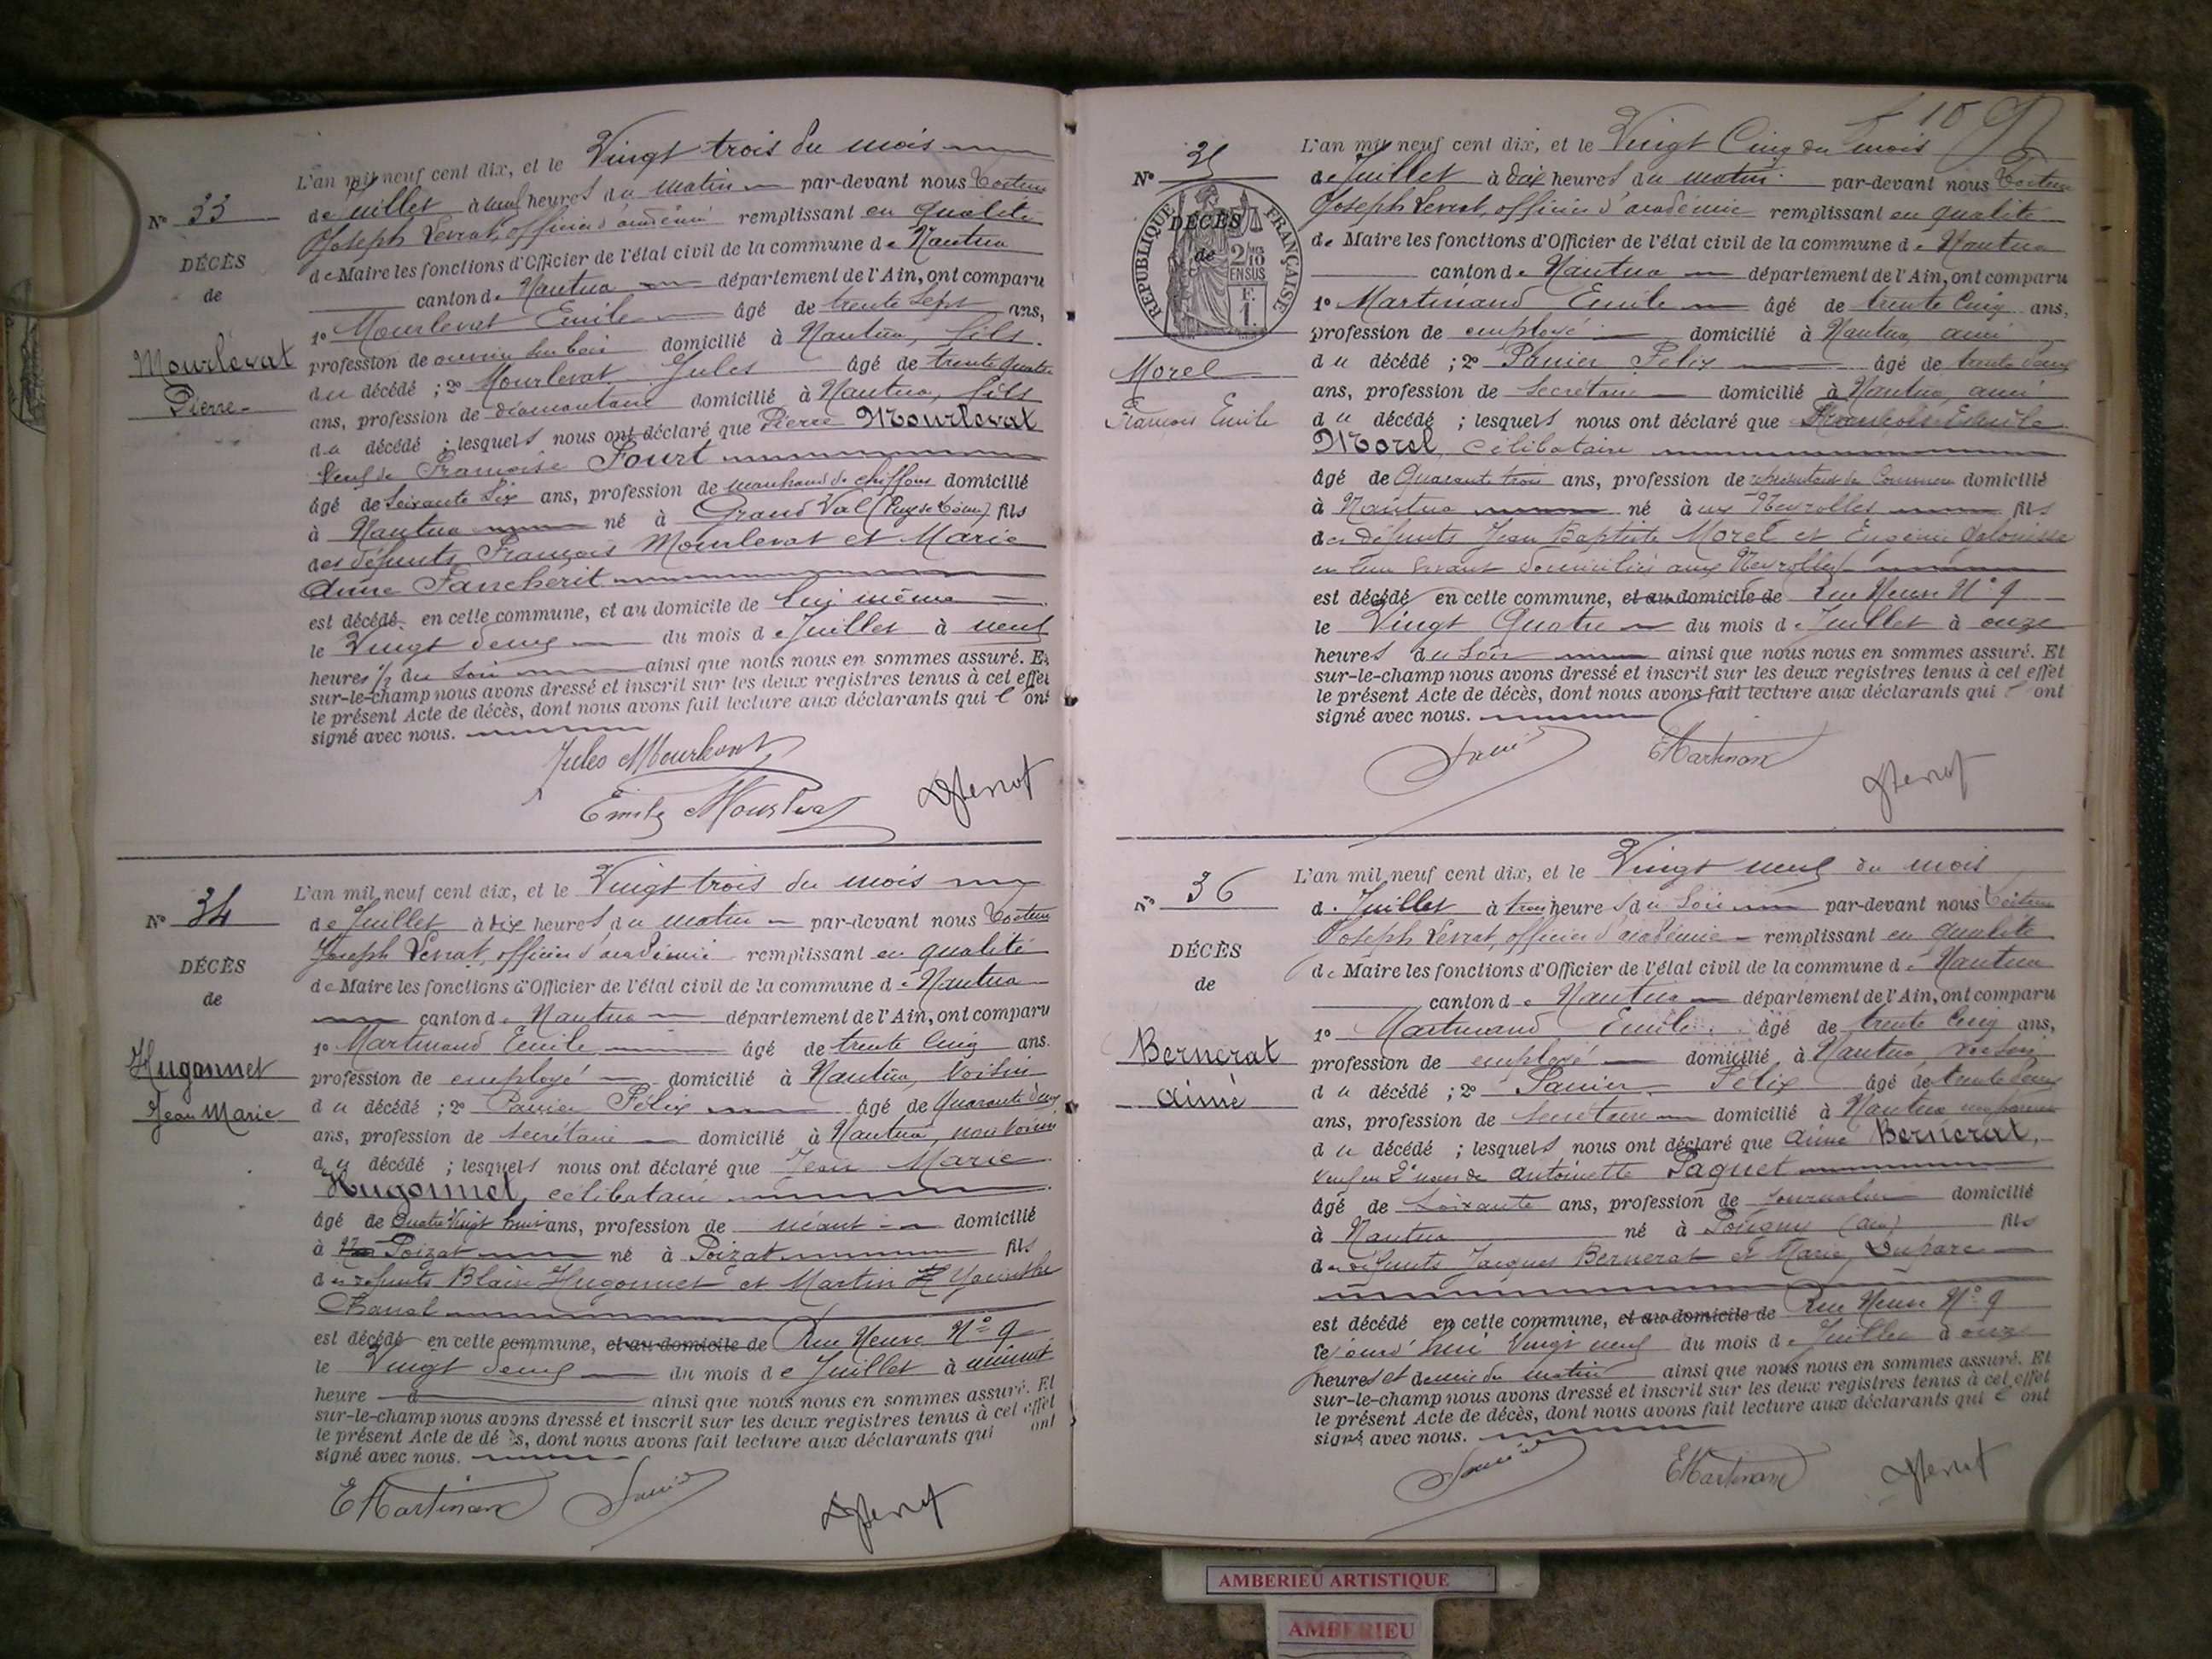 L'an mil neuf cent dix, et le Vingt trois du mois
N° 33
de Juillet à heures du matin par-devant nous Docteur
Joseph Levrat, officier d'académie remplissant en qualité
DÉCÈS
de Maire les fonctions d'Officier de l'état civil de la commune de Nantua
de
canton de Nantua département de l'Ain, ont comparu
1° Mourlevat Emile âgé de trente sept ans,
Mourlevat
profession de ouvrier sur bois domicilié à Nantua, fils
Pierre
du décédé ; 2° Mourlevat Jules âgé de trente quatre
ans, profession de diamantaire domicilié à Nantua, fils
du décédé ; lesquels nous ont déclaré que Pierre Mourlevat
veuf de Françoise Fourt
âgé de soixante six ans, profession de marchand de chiffons domicilié
à Nantua né à Grand Val (Puy de Dôme) fils
des défunts François Mourlevat et Marie
Anne Fancherit
est décédé en cette commune, et au domicile de lui même
le Vingt deux du mois de Juillet à neuf
heures ½ du soir ainsi que nous nous en sommes assuré. Et
sur-le-champ nous avons dressé et inscrit sur les deux registres tenus à cet effet
le présent Acte de décès, dont nous avons fait lecture aux déclarants qui l'ont
signé avec nous.
Jules Mourlevat
Emile Mourlevat
L'an mil neuf cent dix, et le Vingt trois du mois
N° 34
de Juillet à dix heures du matin par-devant nous Docteur
Joseph Levrat, officier d'académie remplissant en qualité
DÉCÈS
de Maire les fonctions d'Officier de l'état civil de la commune de Nantua
de
canton de Nantua département de l'Ain, ont comparu
1° Martinand Emile âgé de trente cinq ans.
Hugonnet
profession de employé domicilié à Nantua, voisin
Jean Marie
du décédé ; 2° Panier Félix âgé de quarante deux
ans, profession de secrétaire domicilié à Nantua, non voisin
du décédé ; lesquels nous ont déclaré que Jean Marie
Hugonnet, célibataire
âgé de quatre vingt huit ans, profession de néant domicilié
à Poizat né à Poizat fils
des défunts Blain Hugonnet et Martin Hyacinthe
est décédé en cette commune, et au domicile de Rue Neuve N° 9
le Vingt deux du mois de Juillet à minuit
heure ainsi que nous nous en sommes assuré. Et
sur-le-champ nous avons dressé et inscrit sur les deux registres tenus à cet effet
le présent Acte de décès, dont nous avons fait lecture aux déclarants qui ont
signé avec nous.
E Martinand
109
L'an mil neuf cent dix, et le Vingt Cinq du mois
N° 35
de Juillet à dix heures du matin par-devant nous Docteur
RÉPUBLIQUE FRANÇAISE
2/10 EN SUS
F. 1.
Joseph Levrat, officier d'académie remplissant en qualité
DÉCÈS
de Maire les fonctions d'Officier de l'état civil de la commune de Nantua
de
canton de Nantua département de l'Ain, ont comparu
1° Martinand Emile âgé de trente cinq ans,
profession de employé domicilié à Nantua, ami
Morel
du décédé ; 2° Panier Felix âgé de trente deux
François Emile
ans, profession de secrétaire domicilié à Nantua, ami
du décédé ; lesquels nous ont déclaré que François Emile
Morel célibataire
âgé de quarante trois ans, profession de représentant de Commerce domicilié
à Nantua né à aux Neyrolles fils
des défunts Jean Baptiste Morel et Eugénie
en leur vivant domiciliés aux Neyrolles
est décédé en cette commune, et au domicile de Rue Neuve N° 9
le Vingt Quatre du mois de Juillet à onze
heures du soir ainsi que nous nous en sommes assuré. Et
sur-le-champ nous avons dressé et inscrit sur les deux registres tenus à cet effet
le présent Acte de décès, dont nous avons fait lecture aux déclarants qui ont
signé avec nous.
E Martinand
L'an mil neuf cent dix, et le Vingt neuf du mois
N° 36
de Juillet à trois heures du soir par-devant nous Docteur
Joseph Levrat, officier d'académie remplissant en qualité
DÉCÈS
de Maire les fonctions d'Officier de l'état civil de la commune de Nantua
de
canton de Nantua département de l'Ain, ont comparu
1° Martinand Emile âgé de trente cinq ans,
Bernerat
profession de employé domicilié à Nantua, voisin
Aimé
du décédé ; 2° Panier Félix âgé de trente deux
ans, profession de secrétaire domicilié à Nantua
du décédé ; lesquels nous ont déclaré que Aimé Bernerat,
veuf en 2es noces de Antoinette Paquet
âgé de soixante ans, profession de journalier domicilié
à Nantua né à Pougny (Ain) fils
des défunts Jacques Bernerat et Marie Duparc
est décédé en cette commune, et au domicile de Rue Neuve N° 9
le jourd'hui Vingt neuf du mois de Juillet à onze
heures et demie du matin ainsi que nous nous en sommes assuré. Et
sur-le-champ nous avons dressé et inscrit sur les deux registres tenus à cet effet
le présent Acte de décès, dont nous avons fait lecture aux déclarants qui l'ont
signé avec nous.
E Martinand
AMBERIEU ARTISTIQUE
AMBERIEU